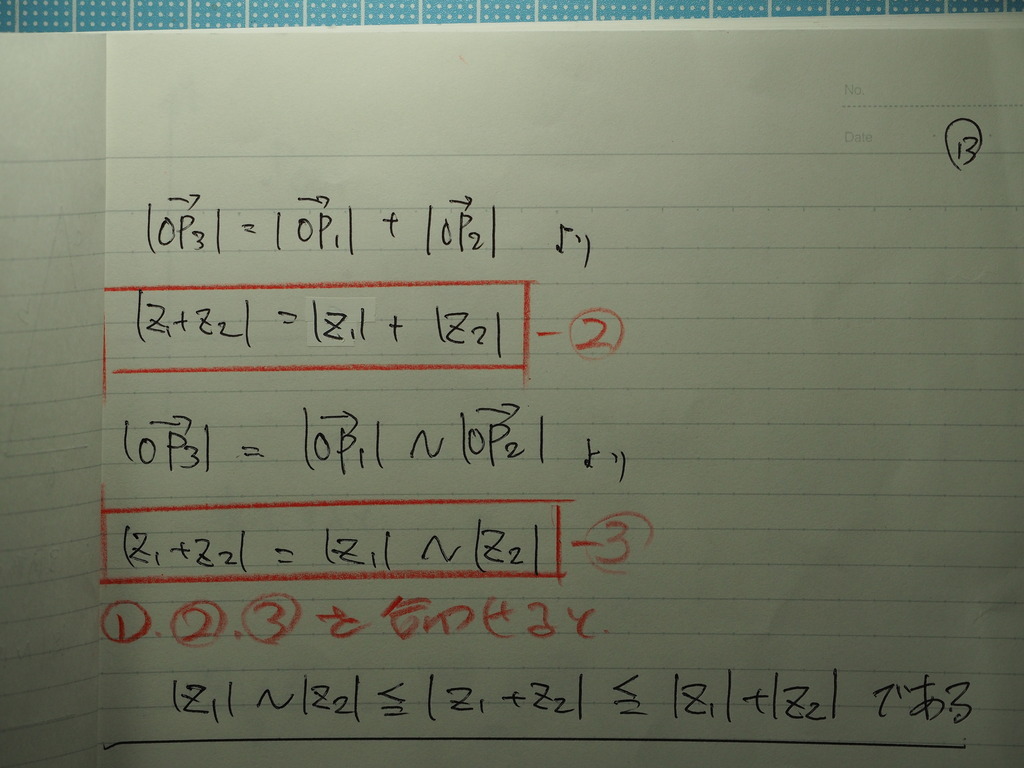 No.
Date
13
|OP₃→| = |OP₁→| + |OP₂→| より
|Z₁+Z₂| = |Z₁| + |Z₂| -②
|OP₃→| = |OP₁→| ~ |OP₂→| より
|Z₁+Z₂| = |Z₁| ~ |Z₂| -③
①.②.③を合わせると.
|Z₁| ~ |Z₂| ≦ |Z₁+Z₂| ≦ |Z₁|+|Z₂| である